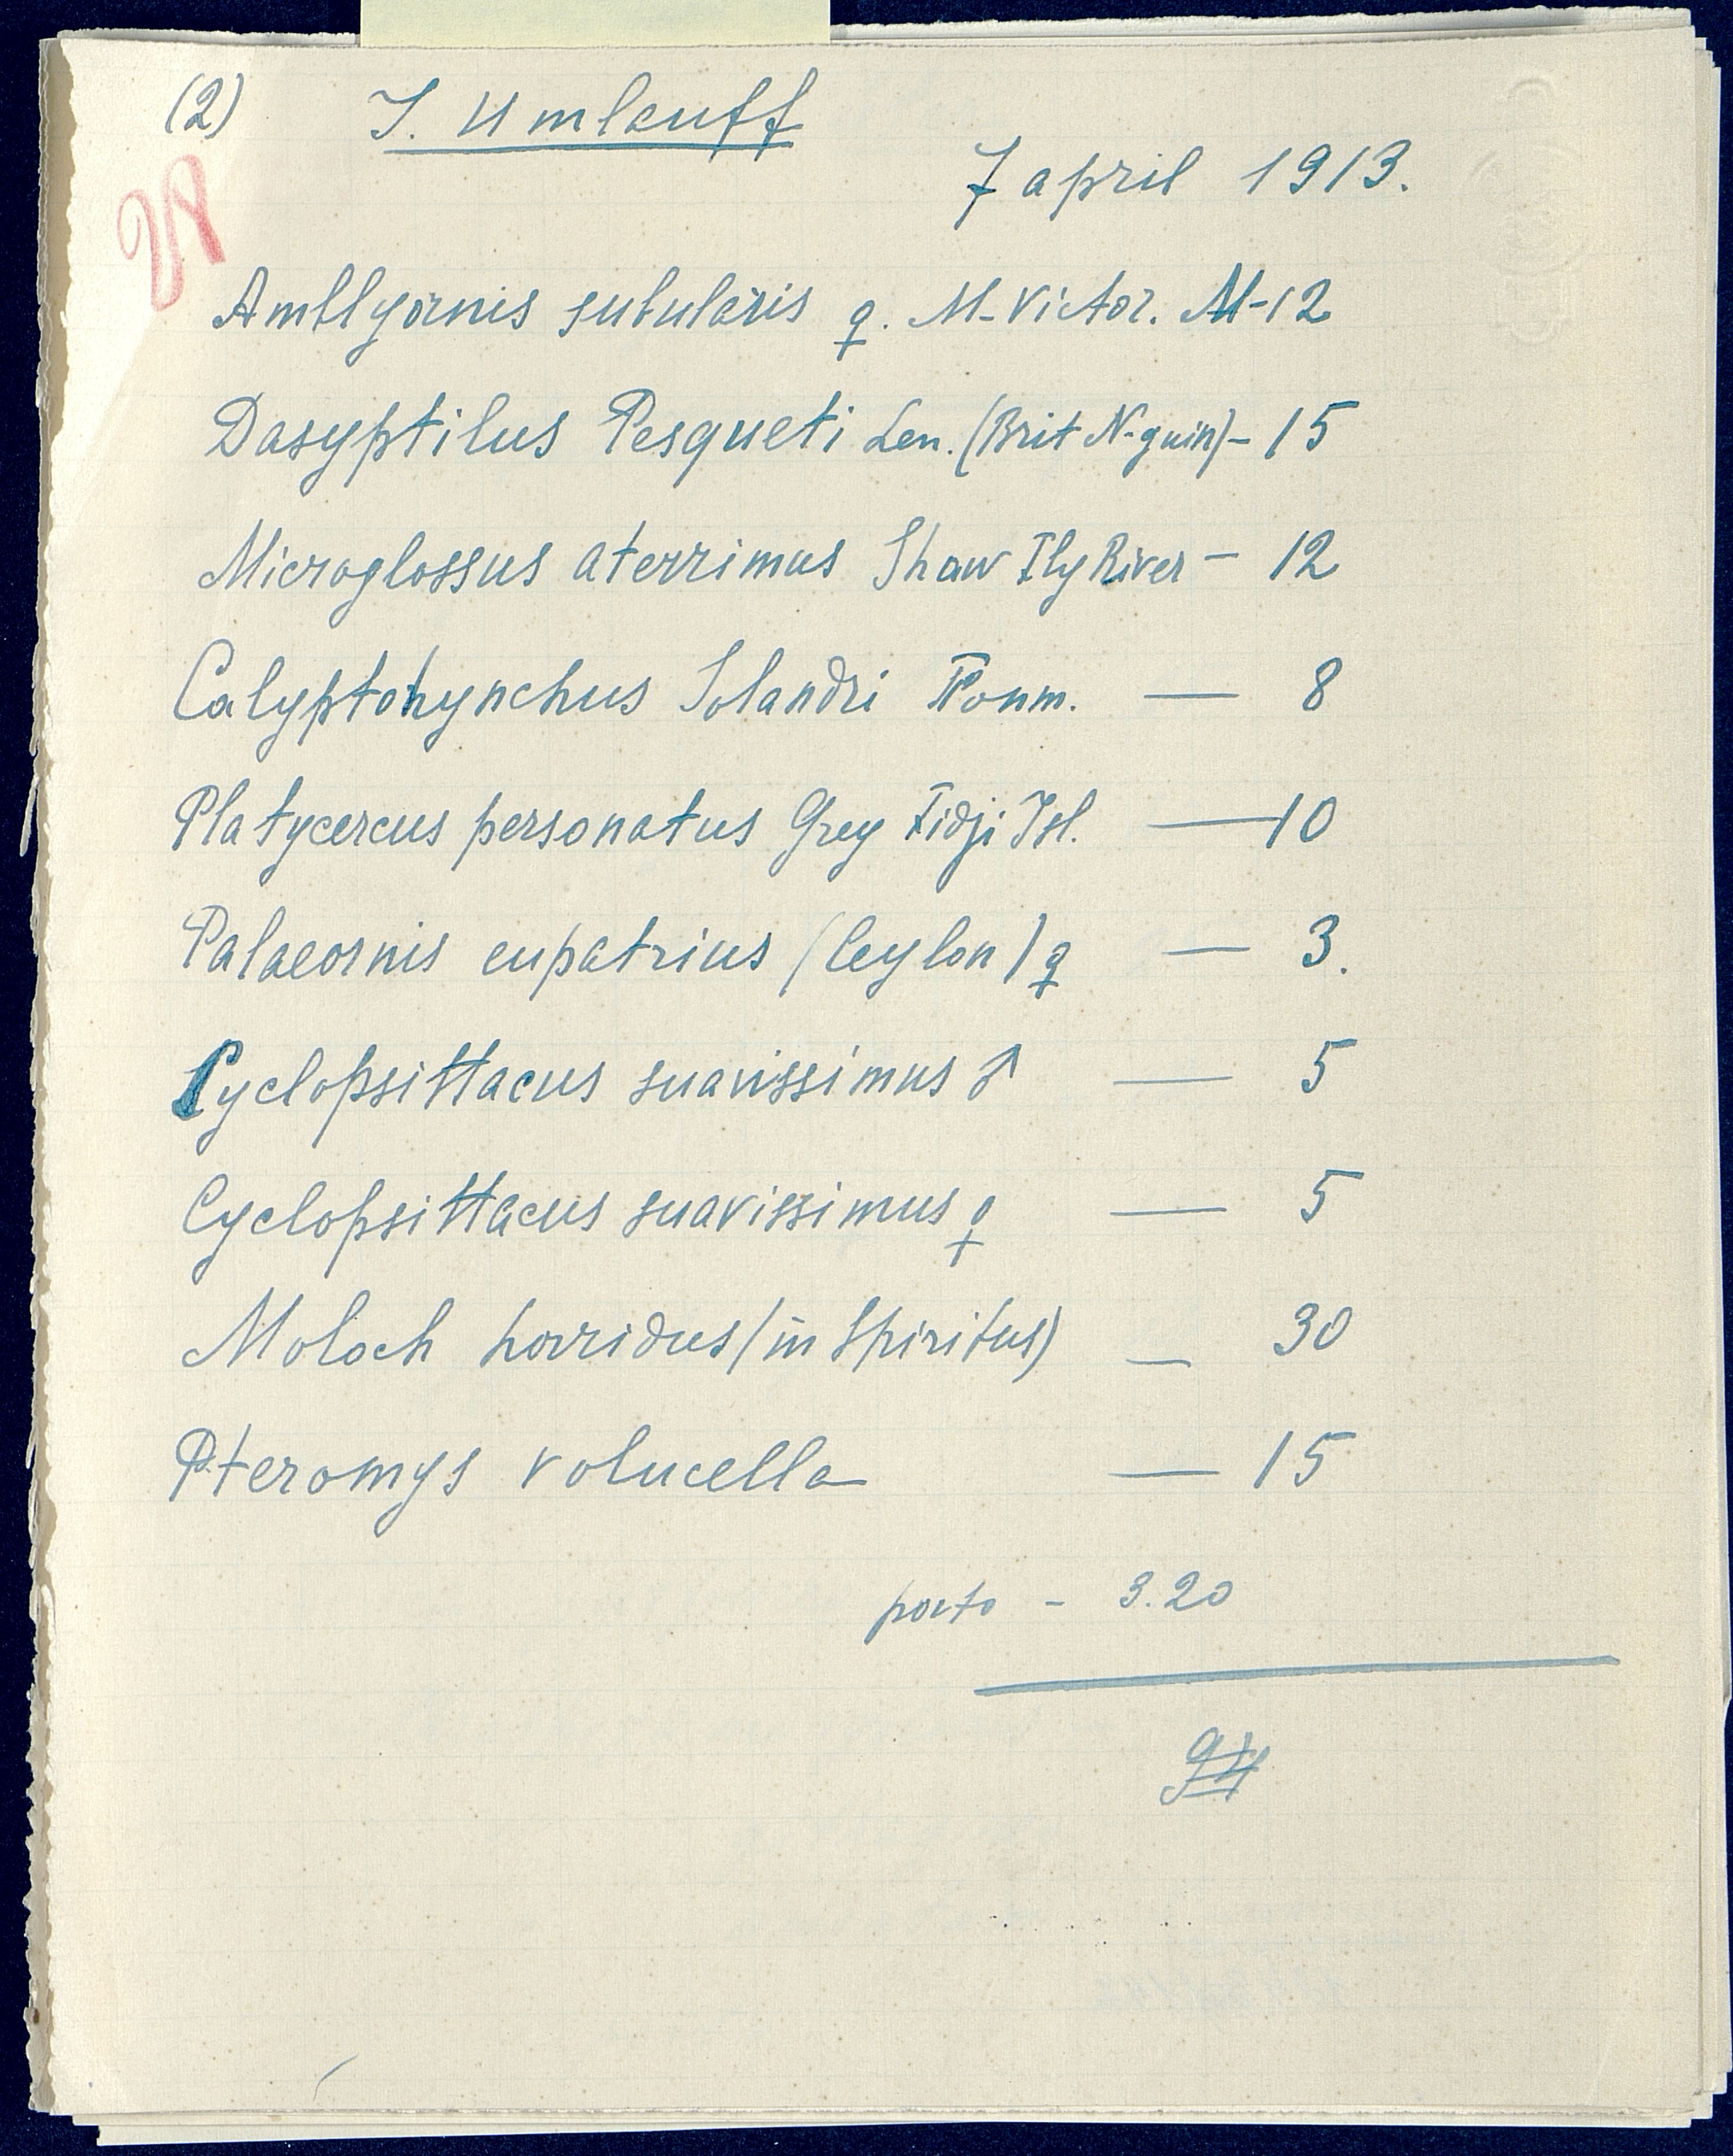 (2) J. Umlauff
7 april 1913.
28
Amblyornis subularis ♀. M-Victor. M-12
Dasyptilus Pesqueti Len. (Brit N-guin) - 15
Microglossus aterrimus Shaw Fly River - 12
Calyptohynchus Solandri Temm. — 8
Platycercus personatus Grey Fidji Isl. — 10
Palaeornis eupatrius (Ceylon) ♀ — 3.
Cyclopsittacus suavissimus ♂ — 5
Cyclopsittacus suavissimus ♀ — 5
Moloch horridus (in Spiritus) — 30
Pteromys volucella — 15
porto - 3.20